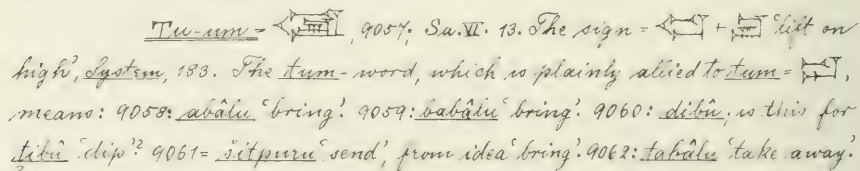 Tu-um = 9057; Sa. VI. 13. The sign = + 'lift on
high', System, 183. The tum-word, which is plainly allied to tum = ,
means: 9058: abâlu 'bring'. 9059: babâlu 'bring'. 9060: dibû; is this for
tibû 'dip'? 9061 = šitpuru 'send', from idea 'bring'. 9062: tabâlu 'take away'.